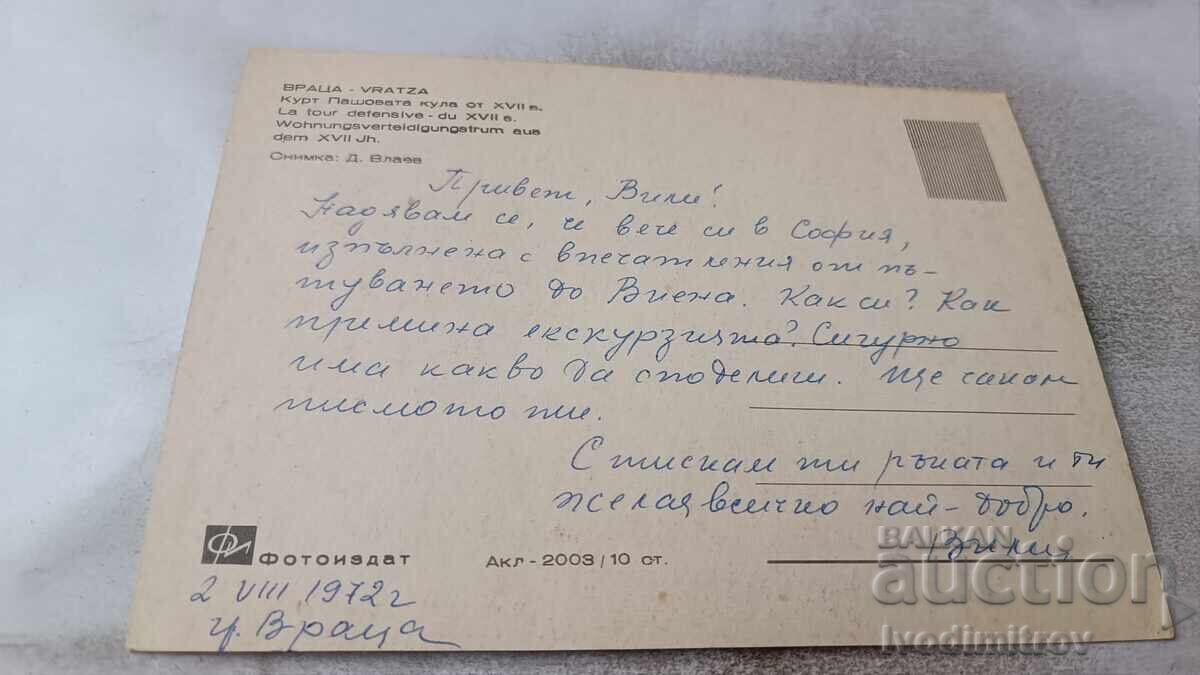 ВРАЦА - VRATZA
Курт Пашовата кула от XVII в.
La tour defensive - du XVII s.
Wohnungsverteidigungstrum aus
dem XVII Jh.
Снимка: Д. Влаев
Привет, Вили!
Надявам се, че вече си в София,
изпълнена с впечатления от пъ-
туването до Виена. Как си? Как
премина екскурзията? Сигурно
има какво да споделиш. Ще чакам
писмото ти.
Стискам ти ръката и ти
желая всичко най-добро.
ФОТОИЗДАТ
Акл - 2003 / 10 ст.
2 VIII 1972 г
гр. Враца
BALKAN
auction
Ivodimitrov